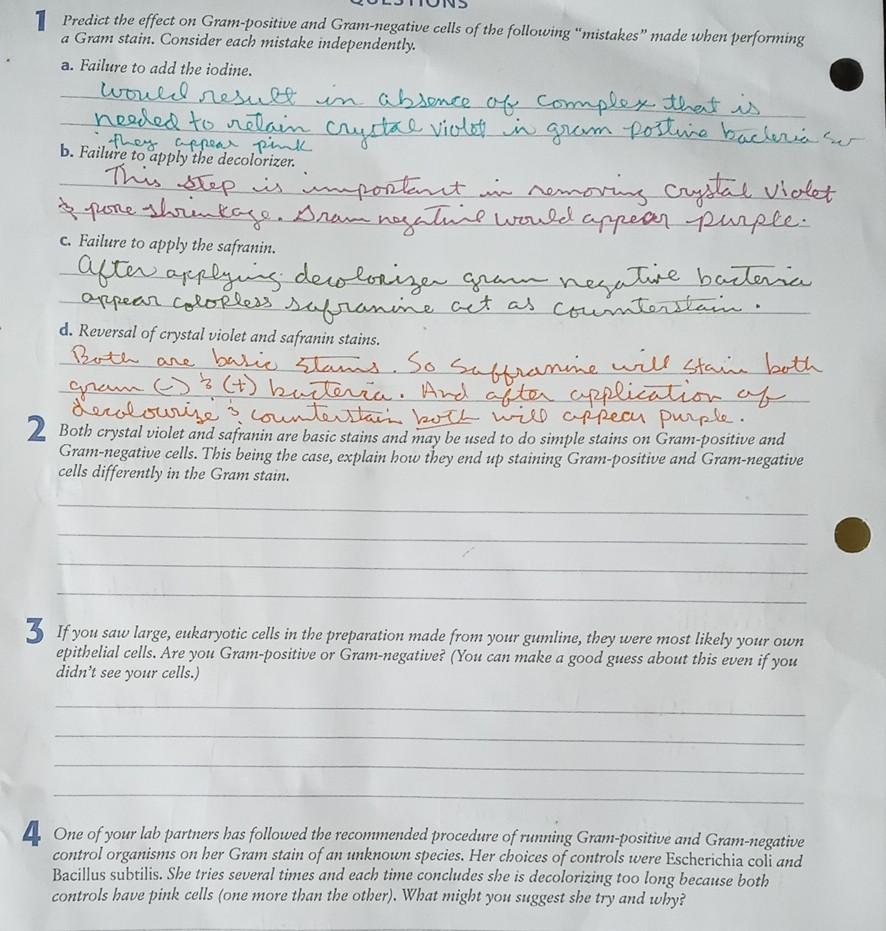 QUESTIONS
1 Predict the effect on Gram-positive and Gram-negative cells of the following “mistakes” made when performing
a Gram stain. Consider each mistake independently.
a. Failure to add the iodine.
would result in absence of complex that is
needed to retain crystal violet in gram postive bacteria so
they appear pink
b. Failure to apply the decolorizer.
This step is important in removing crystal violet
& pore shrinkage. Gram negative would appear purple.
c. Failure to apply the safranin.
After applying decolorizer gram negative bacteria
appear colorless safranine act as counterstain.
d. Reversal of crystal violet and safranin stains.
Both are basic stains. So Saffranine will stain both
gram (-) & (+) bacteria. And after application of
decolourise & counterstain both will appear purple.
2 Both crystal violet and safranin are basic stains and may be used to do simple stains on Gram-positive and
Gram-negative cells. This being the case, explain how they end up staining Gram-positive and Gram-negative
cells differently in the Gram stain.
3 If you saw large, eukaryotic cells in the preparation made from your gumline, they were most likely your own
epithelial cells. Are you Gram-positive or Gram-negative? (You can make a good guess about this even if you
didn’t see your cells.)
4 One of your lab partners has followed the recommended procedure of running Gram-positive and Gram-negative
control organisms on her Gram stain of an unknown species. Her choices of controls were Escherichia coli and
Bacillus subtilis. She tries several times and each time concludes she is decolorizing too long because both
controls have pink cells (one more than the other). What might you suggest she try and why?